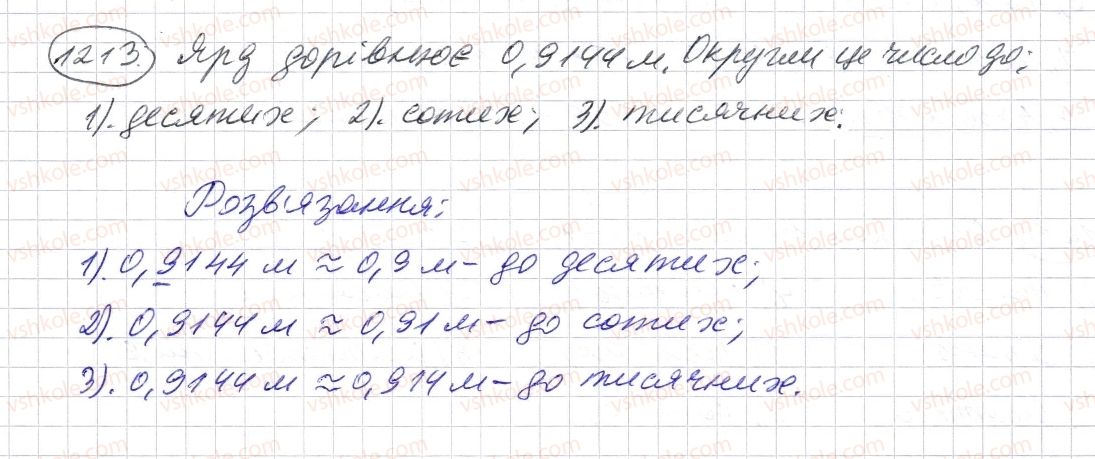 1213. Ярд дорівнює 0,9144 м. Округли це число до:
1). десятих; 2). сотих; 3). тисячних.
Розв'язання:
1). 0,9144 м ≈ 0,9 м - до десятих;
2). 0,9144 м ≈ 0,91 м - до сотих;
3). 0,9144 м ≈ 0,914 м - до тисячних.
vshkole.com